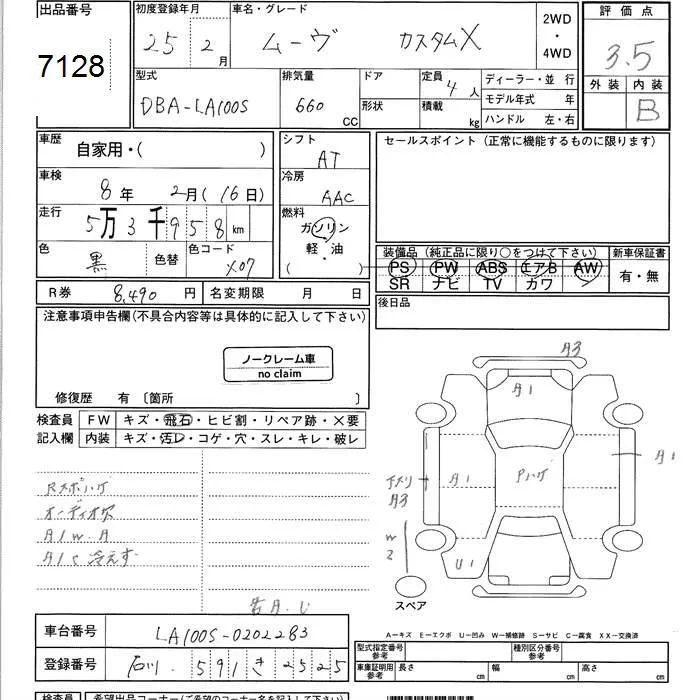 出品番号
7128
初度登録年月
25 2月
車名・グレード
ムーヴ カスタムX
2WD
・
4WD
評価点
3.5
外装 内装
B
型式
DBA-LA100S
排気量
660 CC
ドア
形状
定員 4人
積載 kg
ディーラー・並 行
モデル年式 年
ハンドル 左・右
車歴
自家用・( )
車検
8年 2月(16日)
走行
5万3千958km
色
黒
色替
色コード
X07
シフト
AT
冷房
AAC
燃料
ガソリン
軽・油
( )
セールスポイント(正常に機能するものに限ります)
装備品(純正品に限り○をつけて下さい)
PS PW ABS エアB AW
SR ナビ TV カワ
新車保証書
有・無
R券 8,490円
名変期限 月 日
後日品
注意事項申告欄(不具合内容等は具体的に記入して下さい)
ノークレーム車
no claim
修復歴 有〔箇所 〕
検査員
記入欄
FW キズ・飛石・ヒビ割・リペア跡・×要
内装 キズ・汚レ・コゲ・穴・スレ・キレ・破レ
オーディオ穴
A/W A
A/C 冷えず
A3
A1
A1
Pハゲ
A1
A3
W2
U1
スペア
A―キズ E―エクボ U―凹み W―補修跡 S―サビ C―腐食 XX―交換済
車台番号
LA100S-0202283
登録番号
石川 591 き 2525
型式指定番号
参考
種別区分番号
参考
車庫証明用
参考
長さ cm 幅 cm 高さ cm
検査員
希望出品コーナー(ご希望のコーナー名を記入下さい)